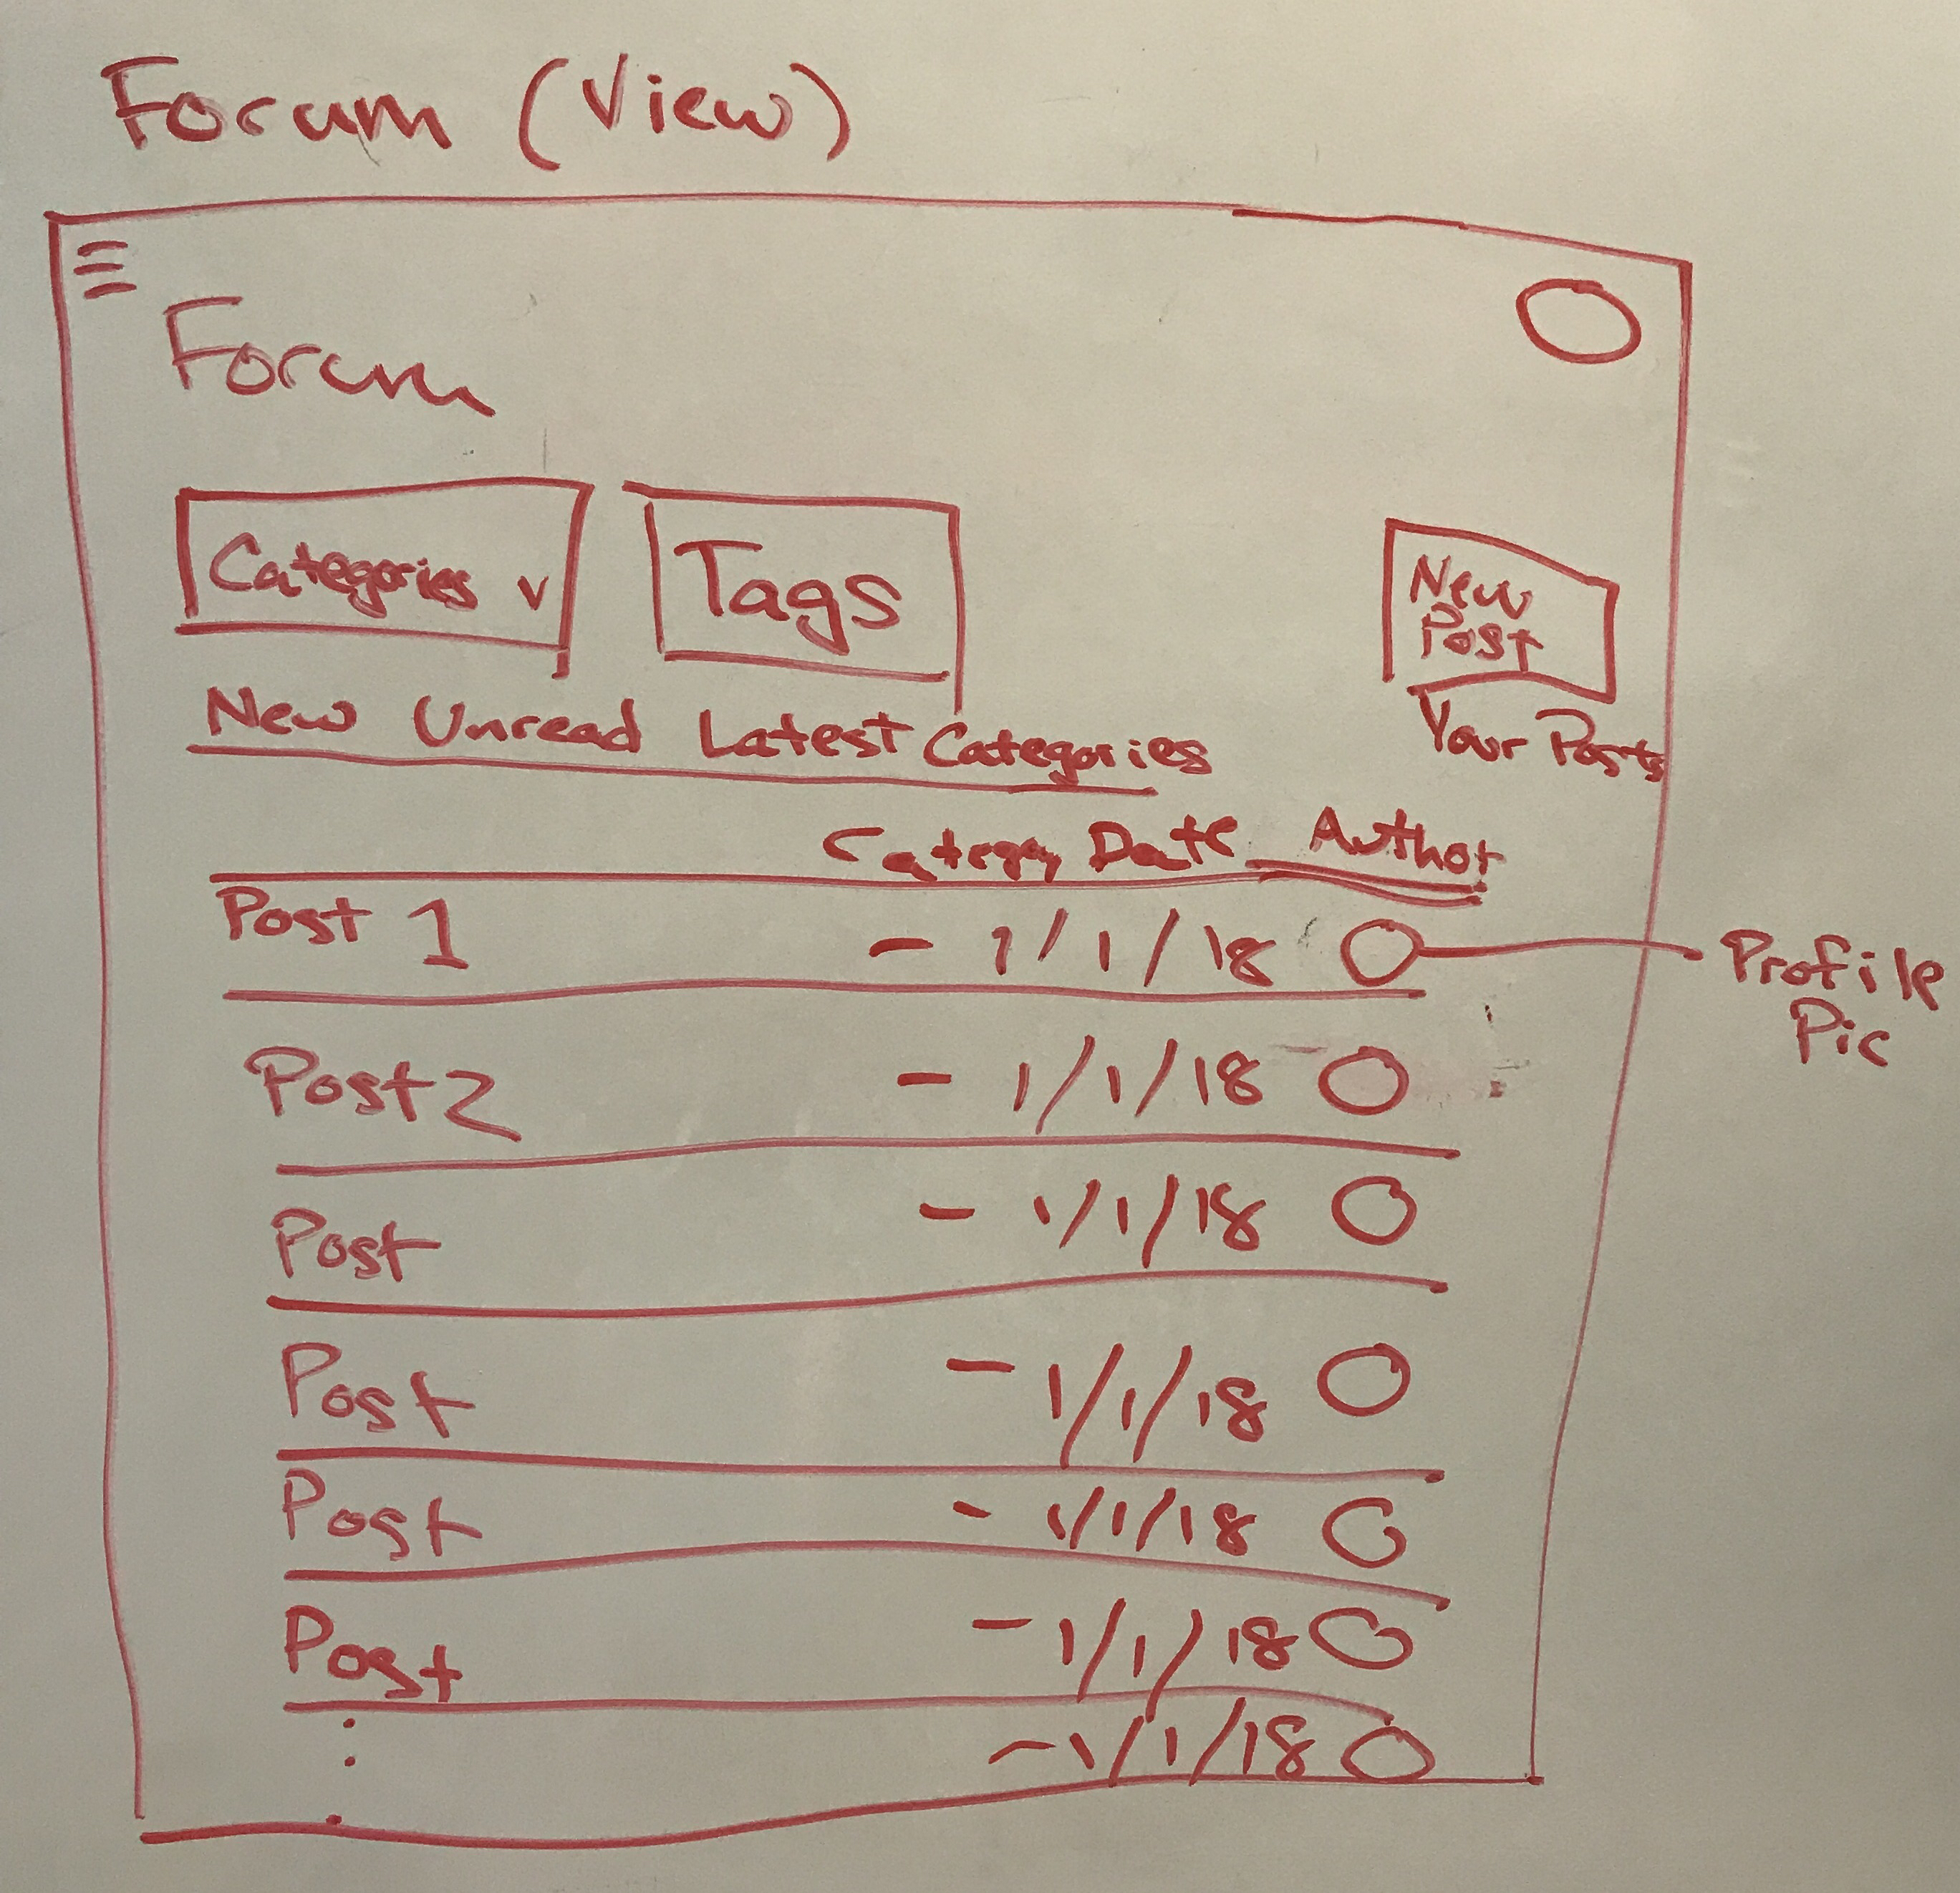 Forum (View)
Forum
Categories v
Tags
New
Post
Your Posts
New Unread Latest Categories
Category Date Author
Post 1 - 1/1/18
Profile
Pic
Post 2 - 1/1/18
Post - 1/1/18
Post - 1/1/18
Post - 1/1/18
Post - 1/1/18
- 1/1/18